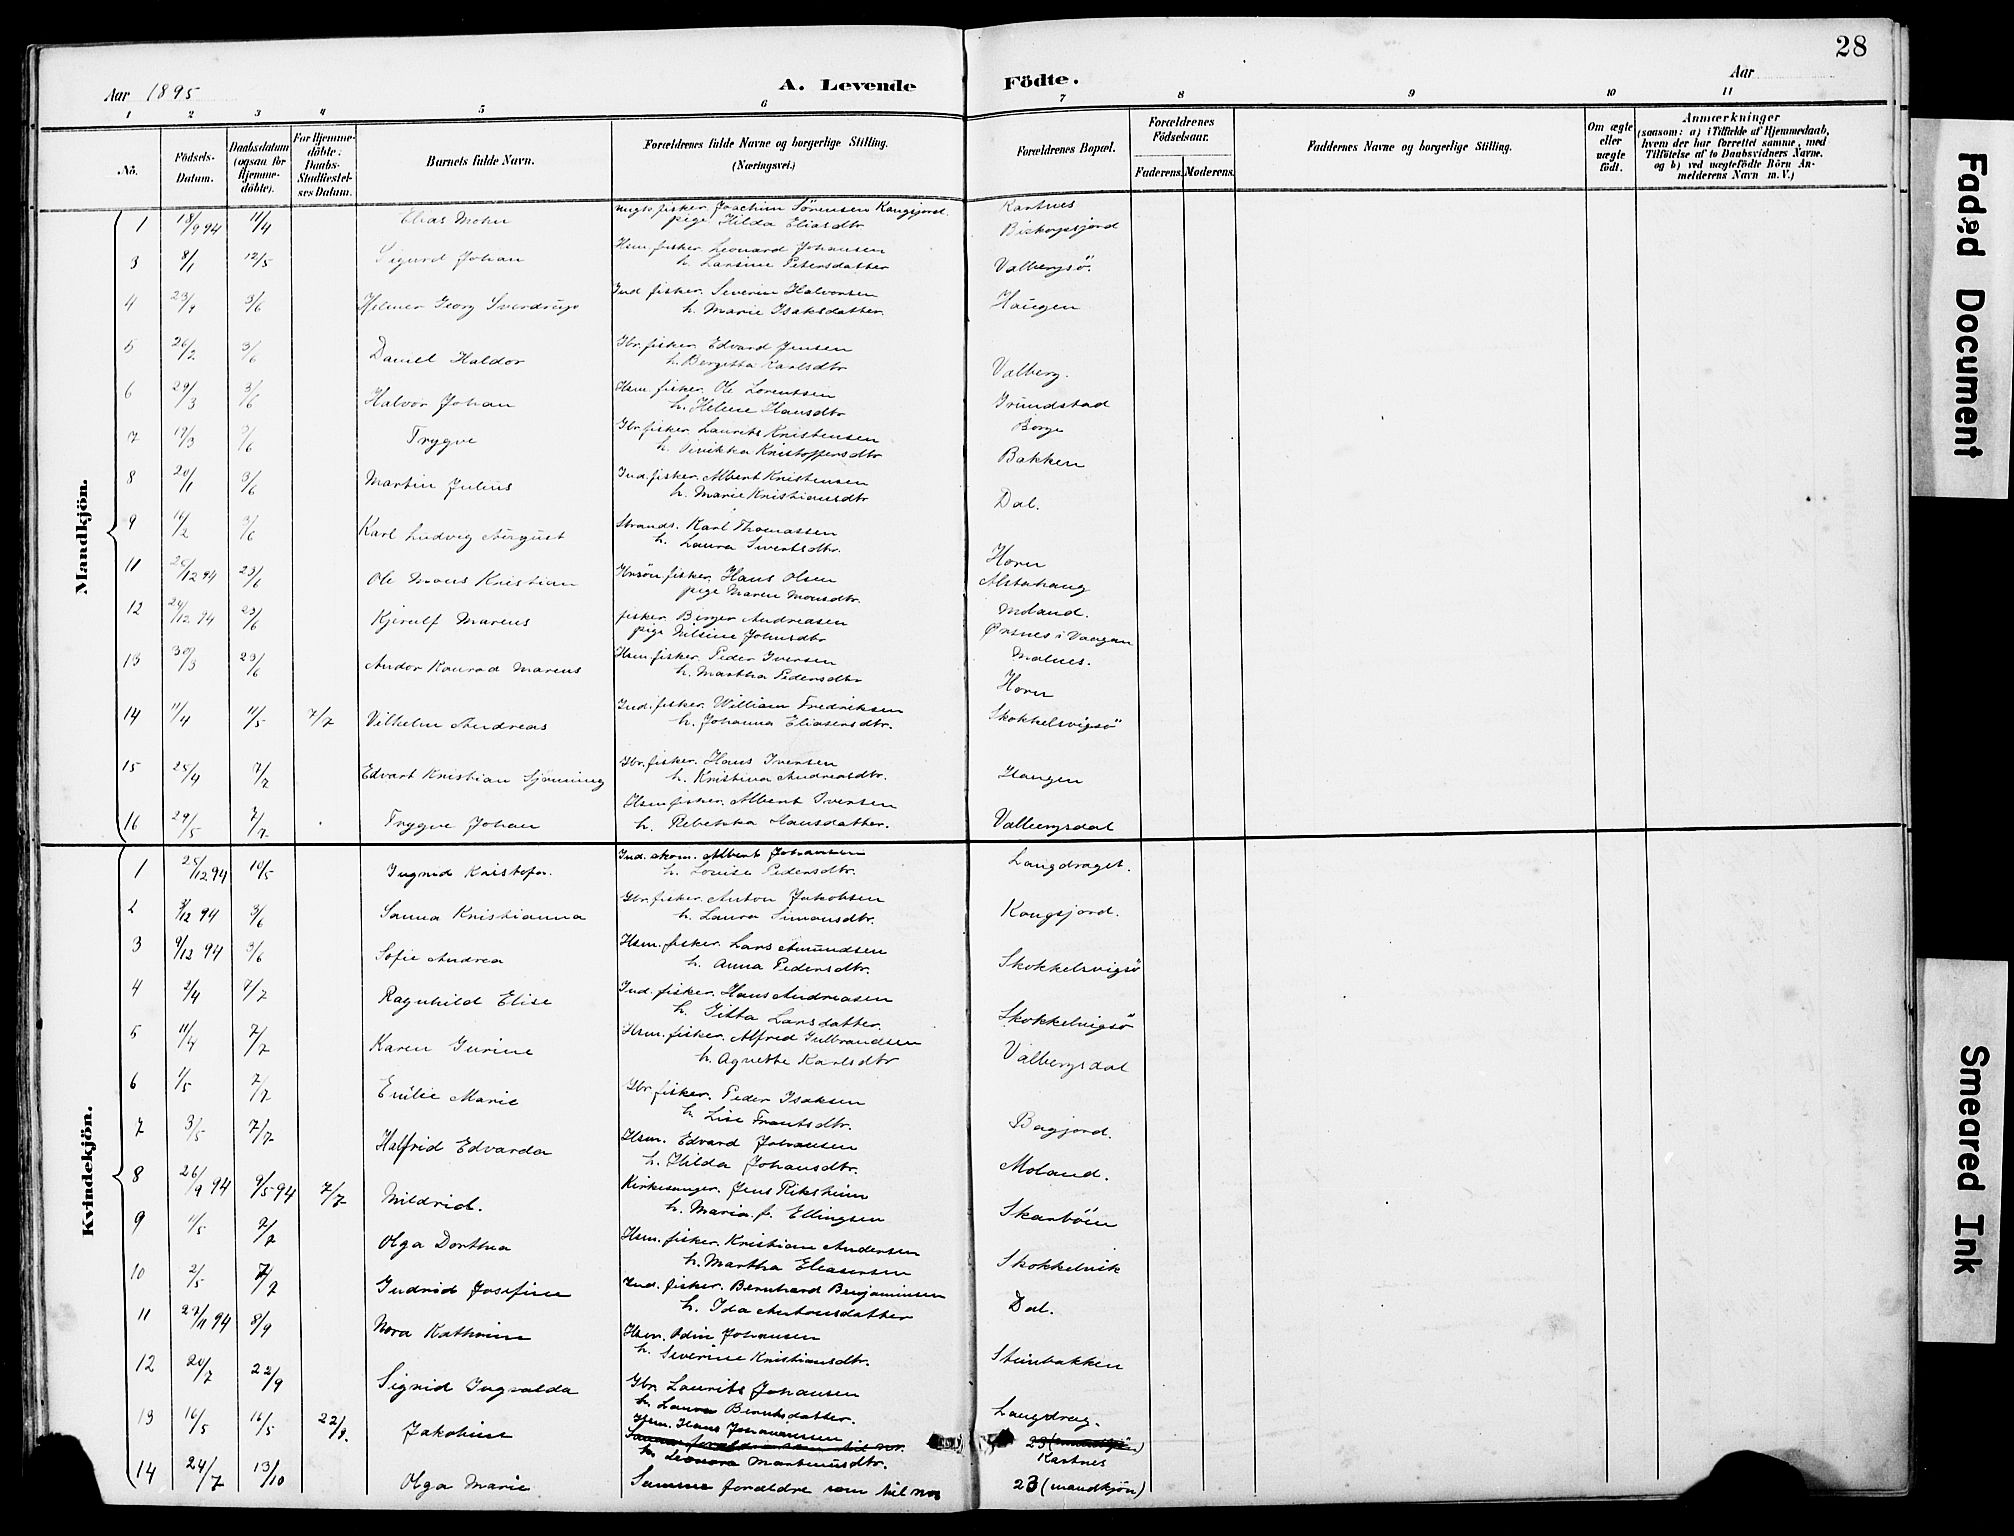 28
Aar 1895
A. Levende Födte.
Aar
1 2 3 4 5 6 7 8 9 10 11
No.
Födsels-Datum.
Daabsdatum (ogsaa for Hjemmedöbte).
For Hjemmedöbte: Daabs-Stadfæstelses Datum.
Barnets fulde Navn.
Forældrenes fulde Navne og borgerlige Stilling. (Næringsvei.)
Forældrenes Bopæl.
Forældrenes Födselsaar.
Faderens. Moderens.
Faddernes Navne og borgerlig Stilling.
Om ægte eller uægte födt.
Anmærkninger (saasom: a) i Tilfælde af Hjemmedaab, hvem der har forrettet samme, med Tilföielse af to Daabsvidners Navne, og b) ved uægtefödte Börn Anmelderens Navn m. V.)
Mandkjön.
1 18/9 94 11/4 Elias Mohn ungk. fisker Joachim Sörensen Kangsjord. Kartnes
pige Hilda Eliasdtr Biskopsjord
3 8/1 12/5 Sigurd Johan Hsm. fisker. Leonard Johansen
h. Larsine Petersdatter Valbergsö.
4 23/9 3/6 Helmer Georg Sverdrup Ind. fisker. Severin Halvorsen
h. Marie Isaksdatter. Haugen
5 26/2 3/6 Daniel Haldor Gbr. fisker. Edvard Jensen
h. Bergitta Karlsdtr Valberg.
6 29/3 3/6 Halvor Johan Hsm. fisker. Ole Lorentsen
h. Helene Hansdtr Grundstad
7 12/3 3/6 Trygve Gbr. fisker. Laurits Kristensen Borge
h. Kristoffersdtr Bakken
8 20/1 3/6 Martin Julius Ind. fisker. Albert Kristensen
h. Marie Kristiansdtr Dal.
9 16/2 3/6 Karl Ludvig August Strands. Karl Thomassen
h. Laura Sivertsdtr. Horn
11 25/12 94 23/6 Ole Mons Kristian fisker. Hans Olsen Alstahaug
pige Maren Monsdtr. Moland.
12 24/12 94 23/6 Kjerulf Marcus fisker Birger Andreasen Ørsnes i Vaagan
pige Nilsine Johnsdtr Malnes.
13 30/3 23/6 Andor Konrad Marcus Hsm. fisker. Peder Iversen
h. Martha Pedersdtr Horn
14 11/4 11/5 7/7 Vilhelm Andreas Ind. fisker. William Fredriksen
h. Johanna Eliasersdtr. Skokkelsvigsö
15 25/4 7/7 Edvart Kristian Sjönning Gbr. fisker. Hans Iversen
h. Kristina Andreasdtr. Haugen
16 29/5 7/7 Trygve Johan Hsm. fisker. Albert Iversen
h. Rebekka Hansdatter. Valbergsdal
Kvindekjön.
1 25/12 94 10/5 Ingrid Kristofa. Ind. skom. Albert Johansen
h. Louise Pedersdtr. Langdraget.
2 3/12 94 3/6 Sanna Kristianna Gbr. fisker. Anton Jakobsen
h. Laura Simonsdtr. Kangsjord.
3 9/12 94 3/6 Sofie Andrea Hsm. fisker. Lars Amundsen
h. Anna Pedersdtr. Skokkelsvigsö
4 2/4 7/7 Ragnhild Elise Ind. fisker. Hans Andreasen
h. Gitta Larsdatter. Skokkelvigsö
5 11/4 7/7 Karen Gurine Hsm. fisker. Alfred Gulbrandsen
h. Agnethe Karlsdtr Valbergsdal
6 1/5 7/7 Emilie Marie Gbr. fisker. Peder Isaksen
h. Lise Frantsdtr. Bogjord.
7 3/5 7/7 Halfrid Edvarda Hsm. Edvard Johansen
h. Hilda Johansdtr. Moland.
8 26/9 94 9/5 94 7/7 Mildrid. Kirkesanger. Jens Riksheim
h. Maria f. Ellingsen Skarböen
9 11/5 7/7 Olga Dorthea Hsm. fisker. Kristian Andersen
h. Martha Eliasersen Skokkelvik
10 2/5 7/7 Gudrid Josefine Ind. fisker. Bernhard Benjaminsen
h. Ida Antonsdatter Dal.
11 27/11 94 8/9 Nora Kathrine Hsm. Odin Johansen
h. Severine Kristiansdtr. Steinbakken
12 20/7 22/9 Sigrid Ingvalda Gbr. Laurits Johansen
h. Laura Berntsdatter. Langdrag.
13 16/5 16/5 22/9. Jakobine Hsm. Hans Johannesen
Samme forældre som til no. 23 (mandkjön)
h. Leonora Martinusdtr. Kartnes
14 24/7 13/10 Olga Marie Samme forældre som til no 23 (mandkjön)
Faded Document
Smeared Ink